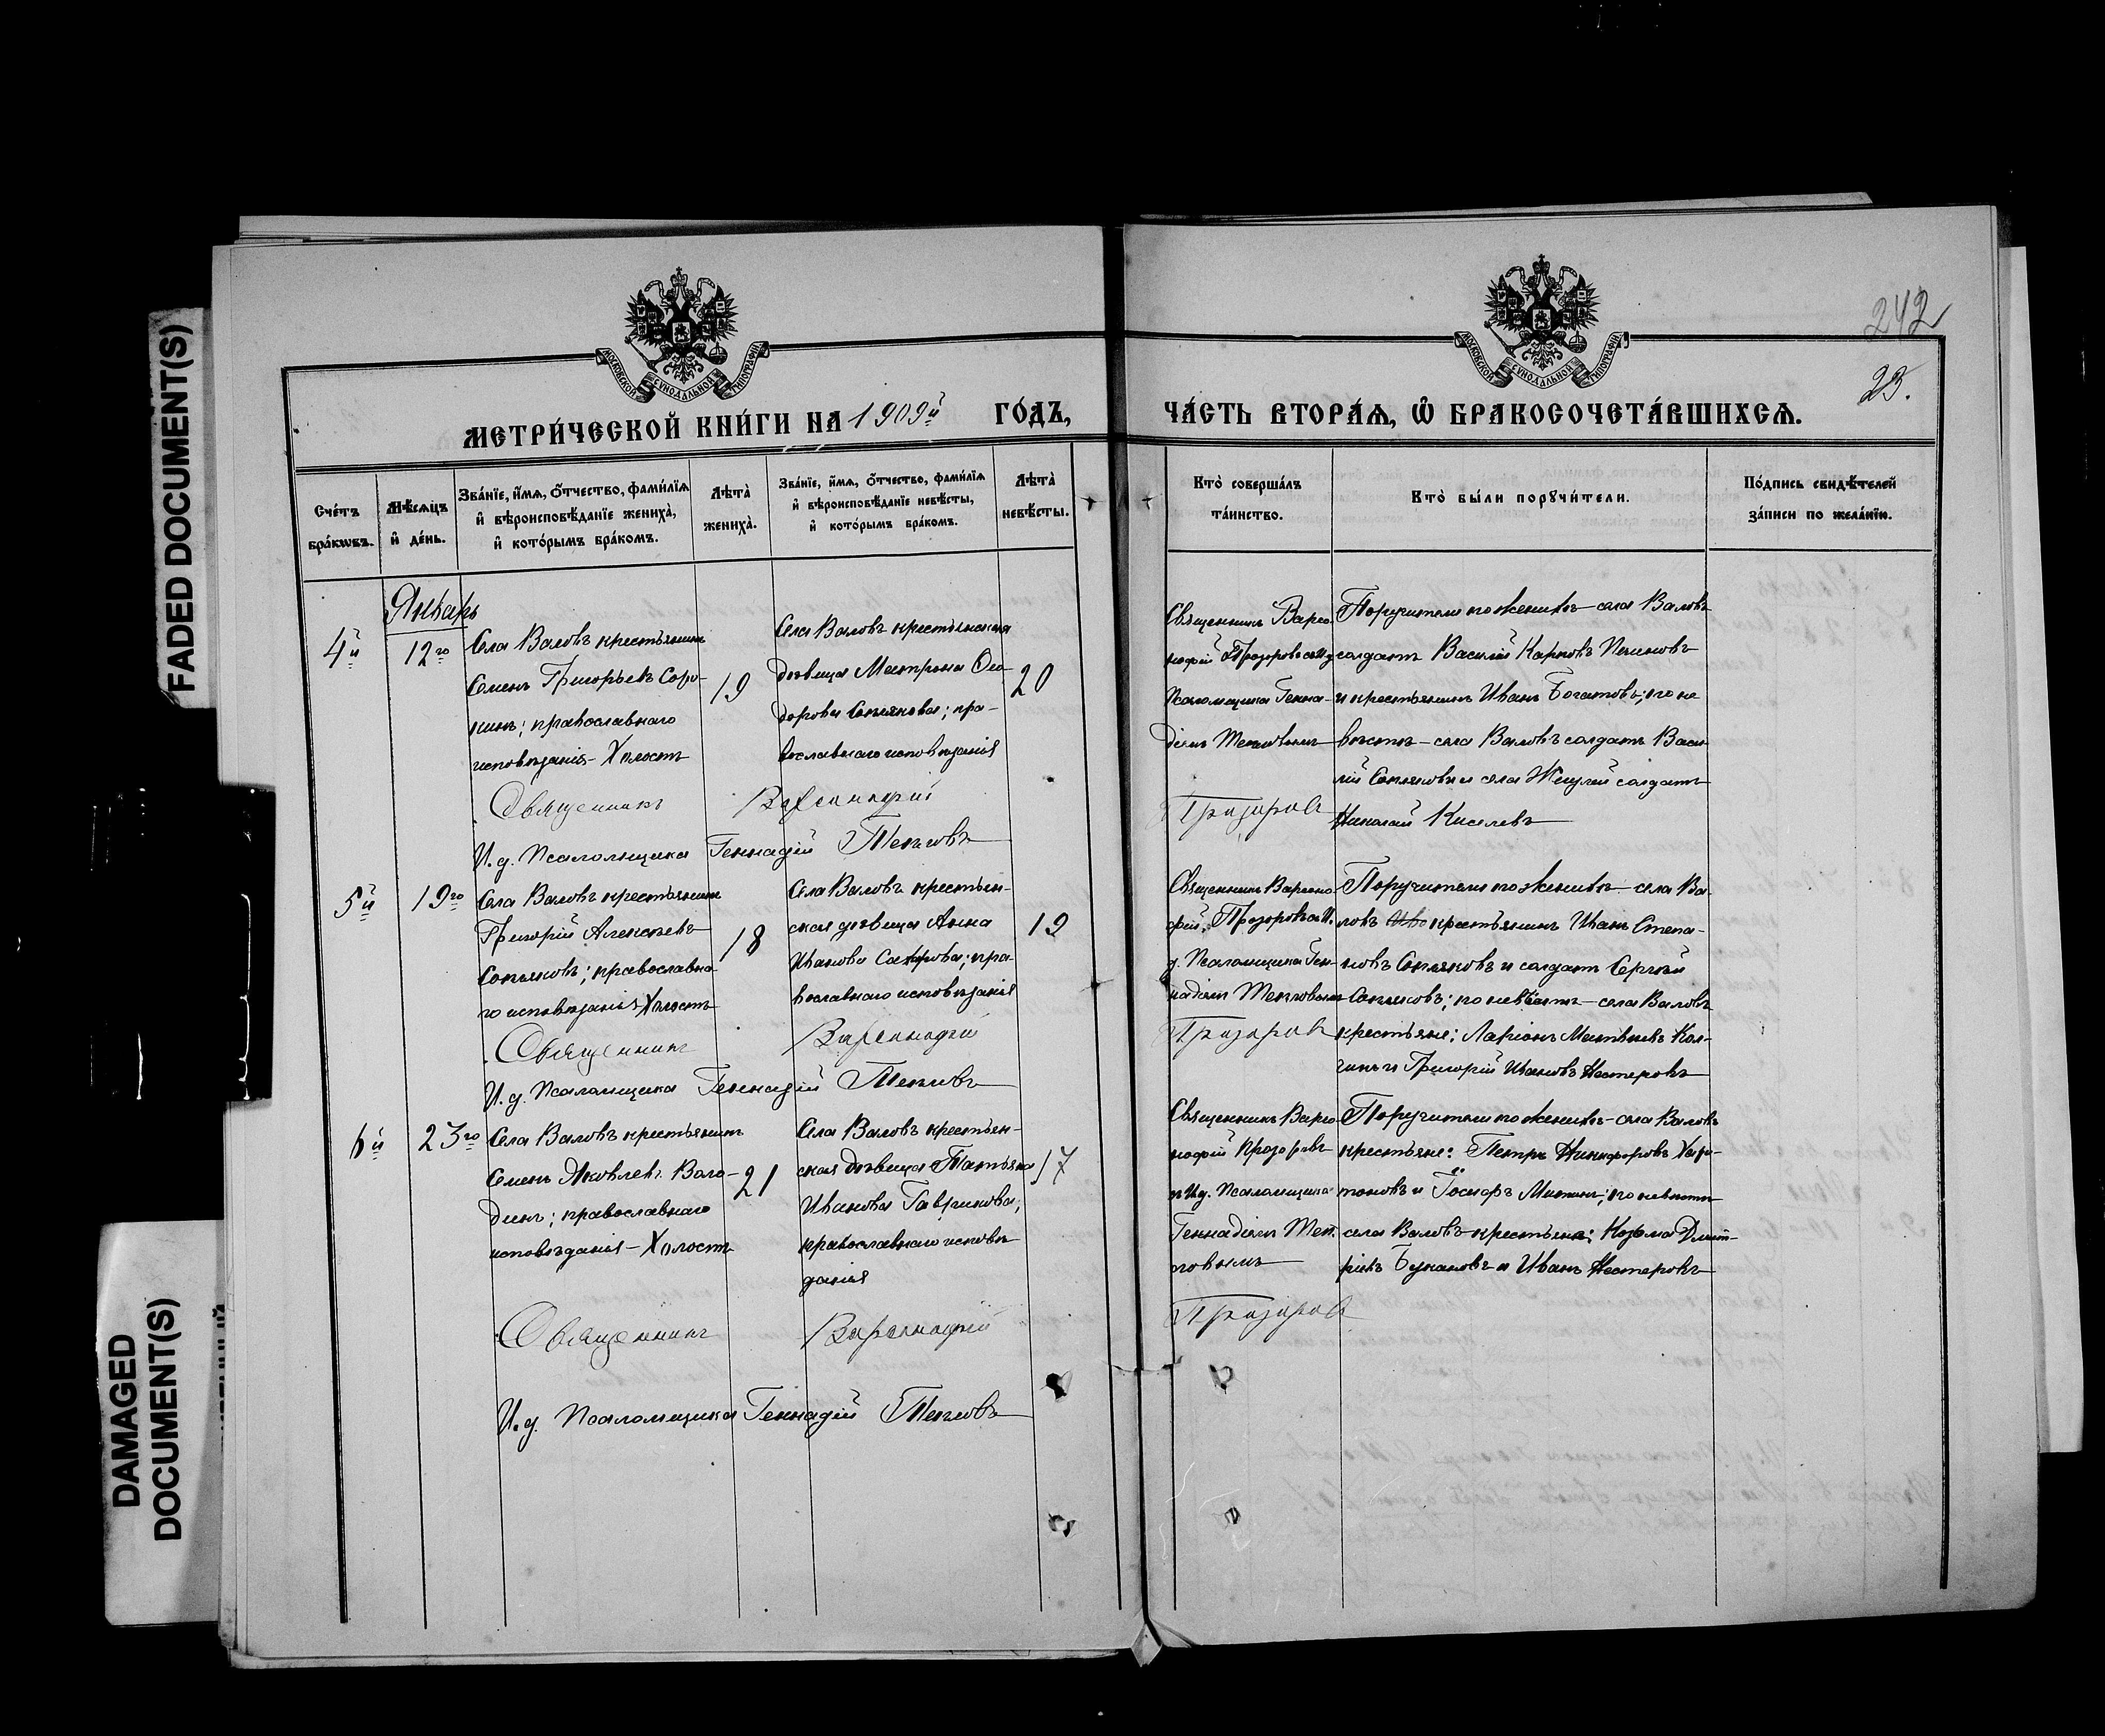 FADED DOCUMENT(S)
DAMAGED
DOCUMENT(S)
МОСКОВСКОЙ СѴНОДАЛЬНОЙ ТИПОГРАФІИ
МЕТРИ́ЧЕСКОЙ КНИ́ГИ НА 1909й ГО́ДЪ,
Сче́тъ
бра́кѡвъ.
Мѣ́сѧцъ
и҆ де́нь.
Зва́нїе, и҆́мѧ, ѻ҆́тчество, фамилі́ѧ
и҆ вѣроисповѣ́данїе жениха̀,
и҆ кото́рымъ бра́комъ.
Лѣта̀
жениха̀.
Зва́нїе, и҆́мѧ, ѻ҆́тчество, фамилі́ѧ
и҆ вѣроисповѣ́данїе невѣ́сты,
и҆ кото́рымъ бра́комъ.
Лѣта̀
невѣ́сты.
Январь
4й
12го
Села Валовъ крестьянинъ
Семенъ Григорьевъ Соро-
кинъ; православнаго
исповѣданія – Холостъ
19
Села Валовъ крестьянская
дѣвица Матрона Ѳео-
дорова; пра-
вославнаго исповѣданія
20
Священникъ Варсонофій
И. д. Псаломщика Геннадій
5й
19го
Села Валовъ крестьянинъ
Григорій Алексѣевъ
православна-
го исповѣданія Холостъ
18
Села Валовъ крестьян-
ская дѣвица Анна
Иванова; пра-
вославнаго исповѣданія
19
Священникъ Варсонофій
И. д. Псаломщика Геннадій
6й
23го
Села Валовъ крестьянинъ
Семенъ Яковлев Воло-
динъ; православнаго
исповѣданія – Холостъ
21
Села Валовъ крестьян-
ская дѣвица Татьяна
Иванова Гаврикова;
православнаго исповѣ
данія
17
Священникъ Варсонофій
И. д. Псаломщика Геннадій
242
23.
МОСКОВСКОЙ СѴНОДАЛЬНОЙ ТИПОГРАФІИ
ЧА́СТЬ ВТОРА́Ѧ, Ѡ҆ БРАКОСОЧЕТА́ВШИХСѦ.
Кто̀ соверша́лъ
та́инство.
Кто̀ бы́ли порꙋчи́тели.
По́дпись свидѣ́телей
за́писи по жела́нїю.
Священникъ Варсо
нофій Прозоровъ и И. д
Псаломщика Генна-
діем
Прозоровъ
Поручители по женихѣ – села Валовъ
солдатъ Василій Карповъ
и крестьянинъ Иванъ Богатовъ; по не
вѣстѣ – села Валовъ солдатъ Васи
лій и села Жигулей солдатъ
Николай Киселевъ
Священникъ Варсоно
фій Прозоровъ и И.
д. Псаломщика Ген-
надіем
Прозоровъ
Поручители по женихѣ – села Ва
ловъ крестьянинъ Иванъ Степа-
новъ и солдатъ Сергѣй
по невѣстѣ – села Валовъ
крестьяне: Ларіонъ Матвѣевъ
и Григорій Ивановъ Нестеровъ
Священникъ Варсо
нофій Прозоровъ
и И. д. Псаломщика
Геннадіем
Прозоровъ
Поручители по женихѣ – села Валовъ
крестьяне: Петръ Никифоровъ Хари-
тоновъ и; по невѣстѣ
села Валовъ крестьяне: Козьма Дмит-
ріевъ и Иванъ Нестеровъ